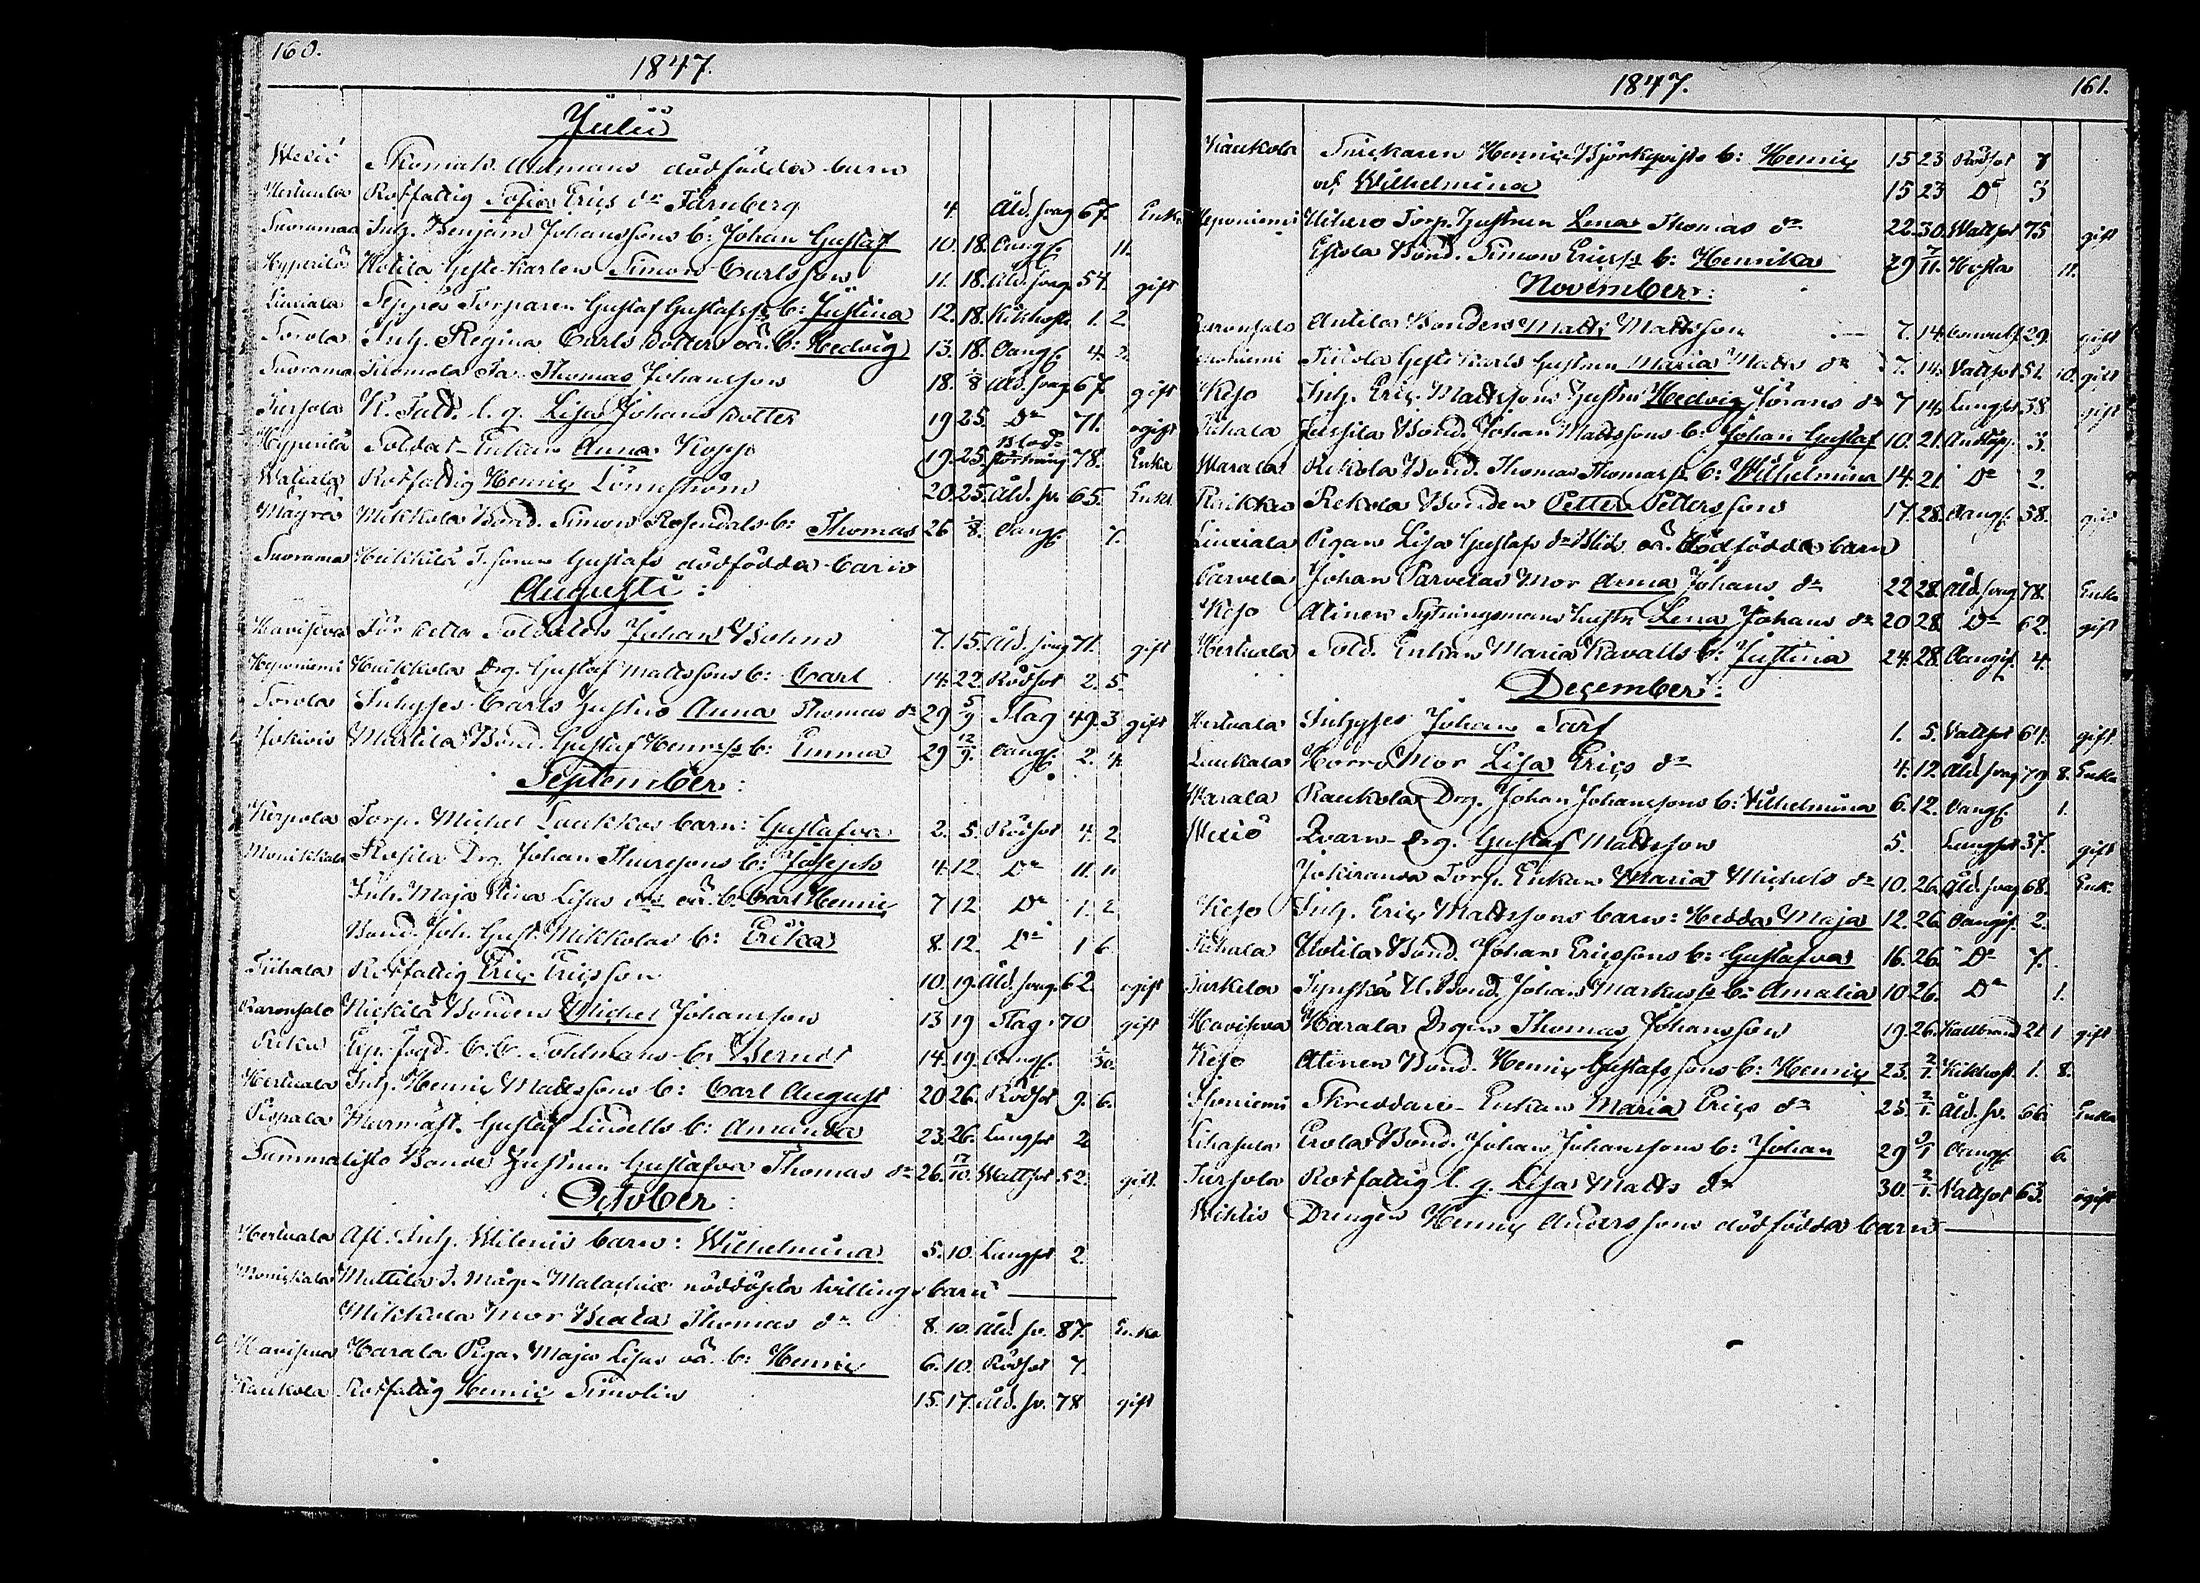 160.
1847.
Julii
Wexiö Adamans dödfödda barn
Hertuala Rotfattig Sofia Erics dr Färnberg 4. Åld. svag 67. Enka
Suoramaa Inh. Benjam Johanssons b: Johan Gustaf 10. 18. Oangf. 11.
Hyperilä Uotila Gästkarlen Simon Carlsson 11. 18. Åld. svag 54. gift
Linviala Seppä Torparen Gustaf Gustafss b: Justina 12. 18. Kikhosta 1. 2.
Torola Inh. Regina Carls dotters oä. b: Hedvig 13. 18. Oangf. 4. 2.
Suorama Thomas Johansson 18. 1/8 Åld. svag 67. gift
Sursola l. q. Lisa Johans dotter 19 25. Do 71. ogift
Hyperilä Soldat-Enkan Anna Kopp 19. 25. Blodstörtning 78. Enka
Waljala Rotfattig Henric Lönnström 20. 25. Åld. sv. 65. Enkl.
Mäyrä Mikkola Bond. Simon Rosendals b: Thomas 26 1/8. Oangf. 7.
Suorama Heikkilä Gustafs dödfödda barn
Augusti:
Havisova Före detta Soldaten Johan Bohm 7. 15. Åld. svag 71. gift
Heponiemi Heikkola Drg. Gustaf Mattssons b: Carl 14. 22. Rödsot 2. 5.
Torola Inhyses Carls hustru Anna Thomas dr 29 5/9 Slag 49. 3 gift
Jokiois Marttila Bond. Gustaf Henricss b: Emma 29 12/9. Oangf. 2. 4.
September:
Kirpola Torp. Michel Laukkos barn: Gustafva 2. 5. Rödsot 4. 2.
Monikkala Rosila Drg. Johan Thuresons b: Joseph 4. 12. Do 11. 11
Inh. Maja Stina Lisas drs oä. b: Carl Henric 7 12 Do 1. 2.
Bond. Joh. Gust. Mikkolas b: Erika 8. 12. Do 1 6.
Tiihala Rotfattig Eric Ericsson 10. 19. Åld. svag. 62. ogift
Karonsalo Nickilä Bonden Michel Johansson 13 19 Slag 70 gift
b: Berndt 14. 19. Oangf. 30.
Hertuala Inh. Henric Mattssons b: Carl August 20 26. Rödsot 9. 6.
Pispala Murmäst. Gustaf Lindells b: Amanda 23. 26. Lungsot 2
Summalisto Bonde hustrun Gustafva Thomas dr 26. 17/10. Wattsot 52. gift.
October:
Hertuala Afl. Inh. Wilenii barn: Wilhelmina 5. 10. Lungsot 2.
Monickala Muttila nöddöpta tvilling barn
Mikkola Mor Beata Thomas dr 8. 10. Åld. sv. 87. Enka
Havisova Harala Pigan Maja Lisas oä. b: Henric 6. 10. Rödsot 7.
Kaukola Rotfattig Henric Simolin 15. 17. Åld. sv. 78 gift
1847.
161.
Kaukola Henric Björkqvists b: Henric 15 23 Rödsot 7
och Wilhelmina 15 23 Do 3
Heponiemi Torp. hustrun Lena Thomas dr 22. 30. Wattsot 75 gift
Eskola Bond. Simon Ericss b: Henrika 29 7/11. Hosta 11.
November:
Karonsalo Anttila Bonden Matts Mattsson 7. 14. Convuls. 29. gift
Heponiemi hustrun Maria Matts dr 7. 14. Vattsot 52. 10. gift
Kejo Inh. Eric Mattssons hustru Hedvig Jörans dr 7 14. Lungsot 38. gift
Tiihala Jussila Bond. Johan Mattssons b: Johan Gustaf 10. 21. Andtäpp. 3.
Warala Rekola Bond. Thomas Thomass b: Wilhelmina 14. 21 Do 2.
Raikkas Rekola Bonden Petter Pettersson 17. 28. Oangf. 58. gift
Linviala Pigan Lisa Gustafs dr oä. dödfödda barn
Parvela Johan Parvelas Mor Anna Johans dr 22 28. Åld. svag 78. Enka
Kejo Alinen Sytningsmans hustru Lena Johans dr 20 28. Do 62. gift
Hertuala Sold. Enkan Maria Kavalls b: Justina 24. 28. Oangif. 4.
December:
Hertuala Inhyses Johan Sarf 1. 5. Vattsot 64. gift.
Laukala Horro Mor Lisa Erics dr 4. 12. Åld. svag 79 8. Enka
Warala Raukola Drg. Johan Johanssons b: Wilhelmina 6. 12. Oangf. 1.
Wexiö Qvarn-Drg. Gustaf Mattsson 5. Lungsot 37. gift
Jokiranta Torp. Enkan Maria Michels dr 10. 26. Åld. svag 68. Enk.
Kejo Inh. Eric Mattssons barn: Hedda Maja 12. 26. Oangif. 2.
Tiihala Uotila Bond. Johan Ericssons b: Gustafva 16. 26. Do 7.
Turkila Bond. Johan Markuss b: Amalia 10 26. Do 1.
Havisova Harala Drgen Thomas Johansson 19. 26. Kallbrand 21 1 gift
Kejo Alinen Bond. Henric Gustafssons b: Henric 23. 2/1. Kikhost 1. 8.
Skreddare-Enkan Maria Erics dr 25. 2/1. Åld. sv. 66 Enka
Lihasula Erola Bond. Johan Johanssons b: Johan 29 9/1 Oangf. 6.
Sursola Rotfattig l. q. Lisa Matts dr 30. 2/1. Vattsot 63. ogift
Wihtis Drengen Henric Anderssons dödfödda barn